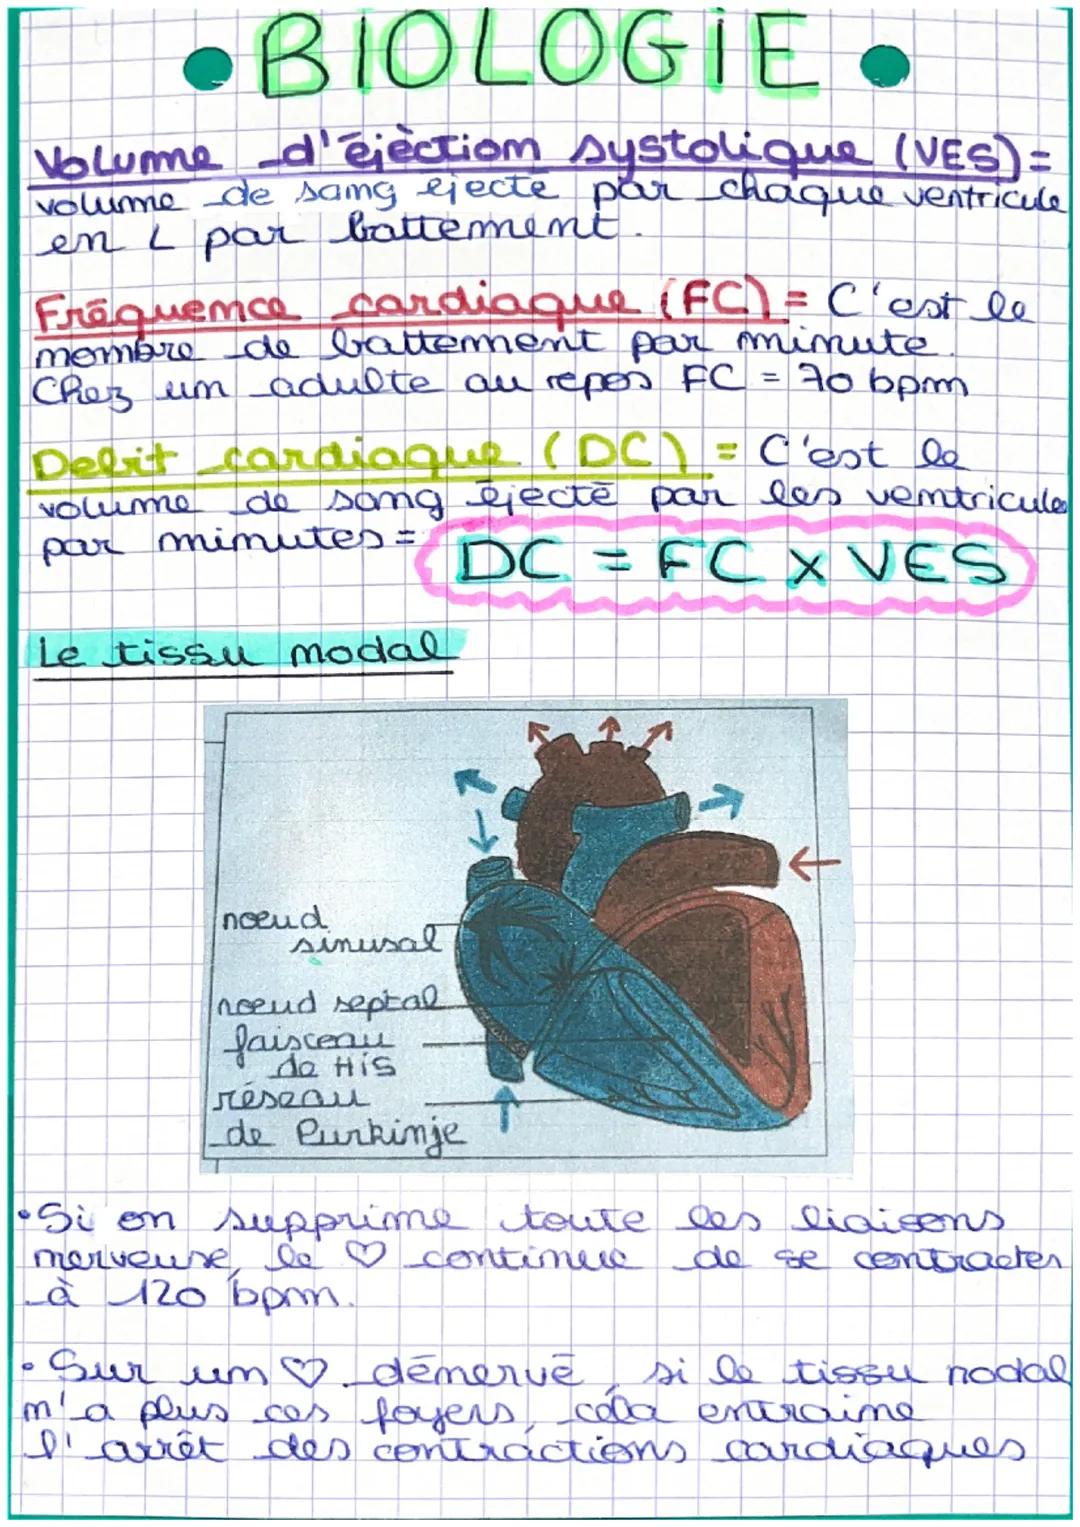 BIOLOGIE
Volume d'éjèction systolique (VES) =
volume de sang ejecte par chaque ventricule
en L par battement.
Fréquence cardiaque (FC) = C'est le
nombre de battement par minute.
Chez un adulte au repos FC = 70 bpm
Debit cardiaque (DC) = C'est le
volume de sang éjecté par les ventricules
par minutes =
DC = FC x VES
Le tissu nodal
noeud
sinusal
noeud septal
faisceau
de His
réseau
de Purkinje
• Si on supprime toute les liaisons
nerveuse, le ♡ continue de se contracter
à 120 bpm.
• Sur un ♡ dénervé, si le tissu nodal
n'a plus ces foyers, cela entraine
l'arrêt des contractions cardiaques